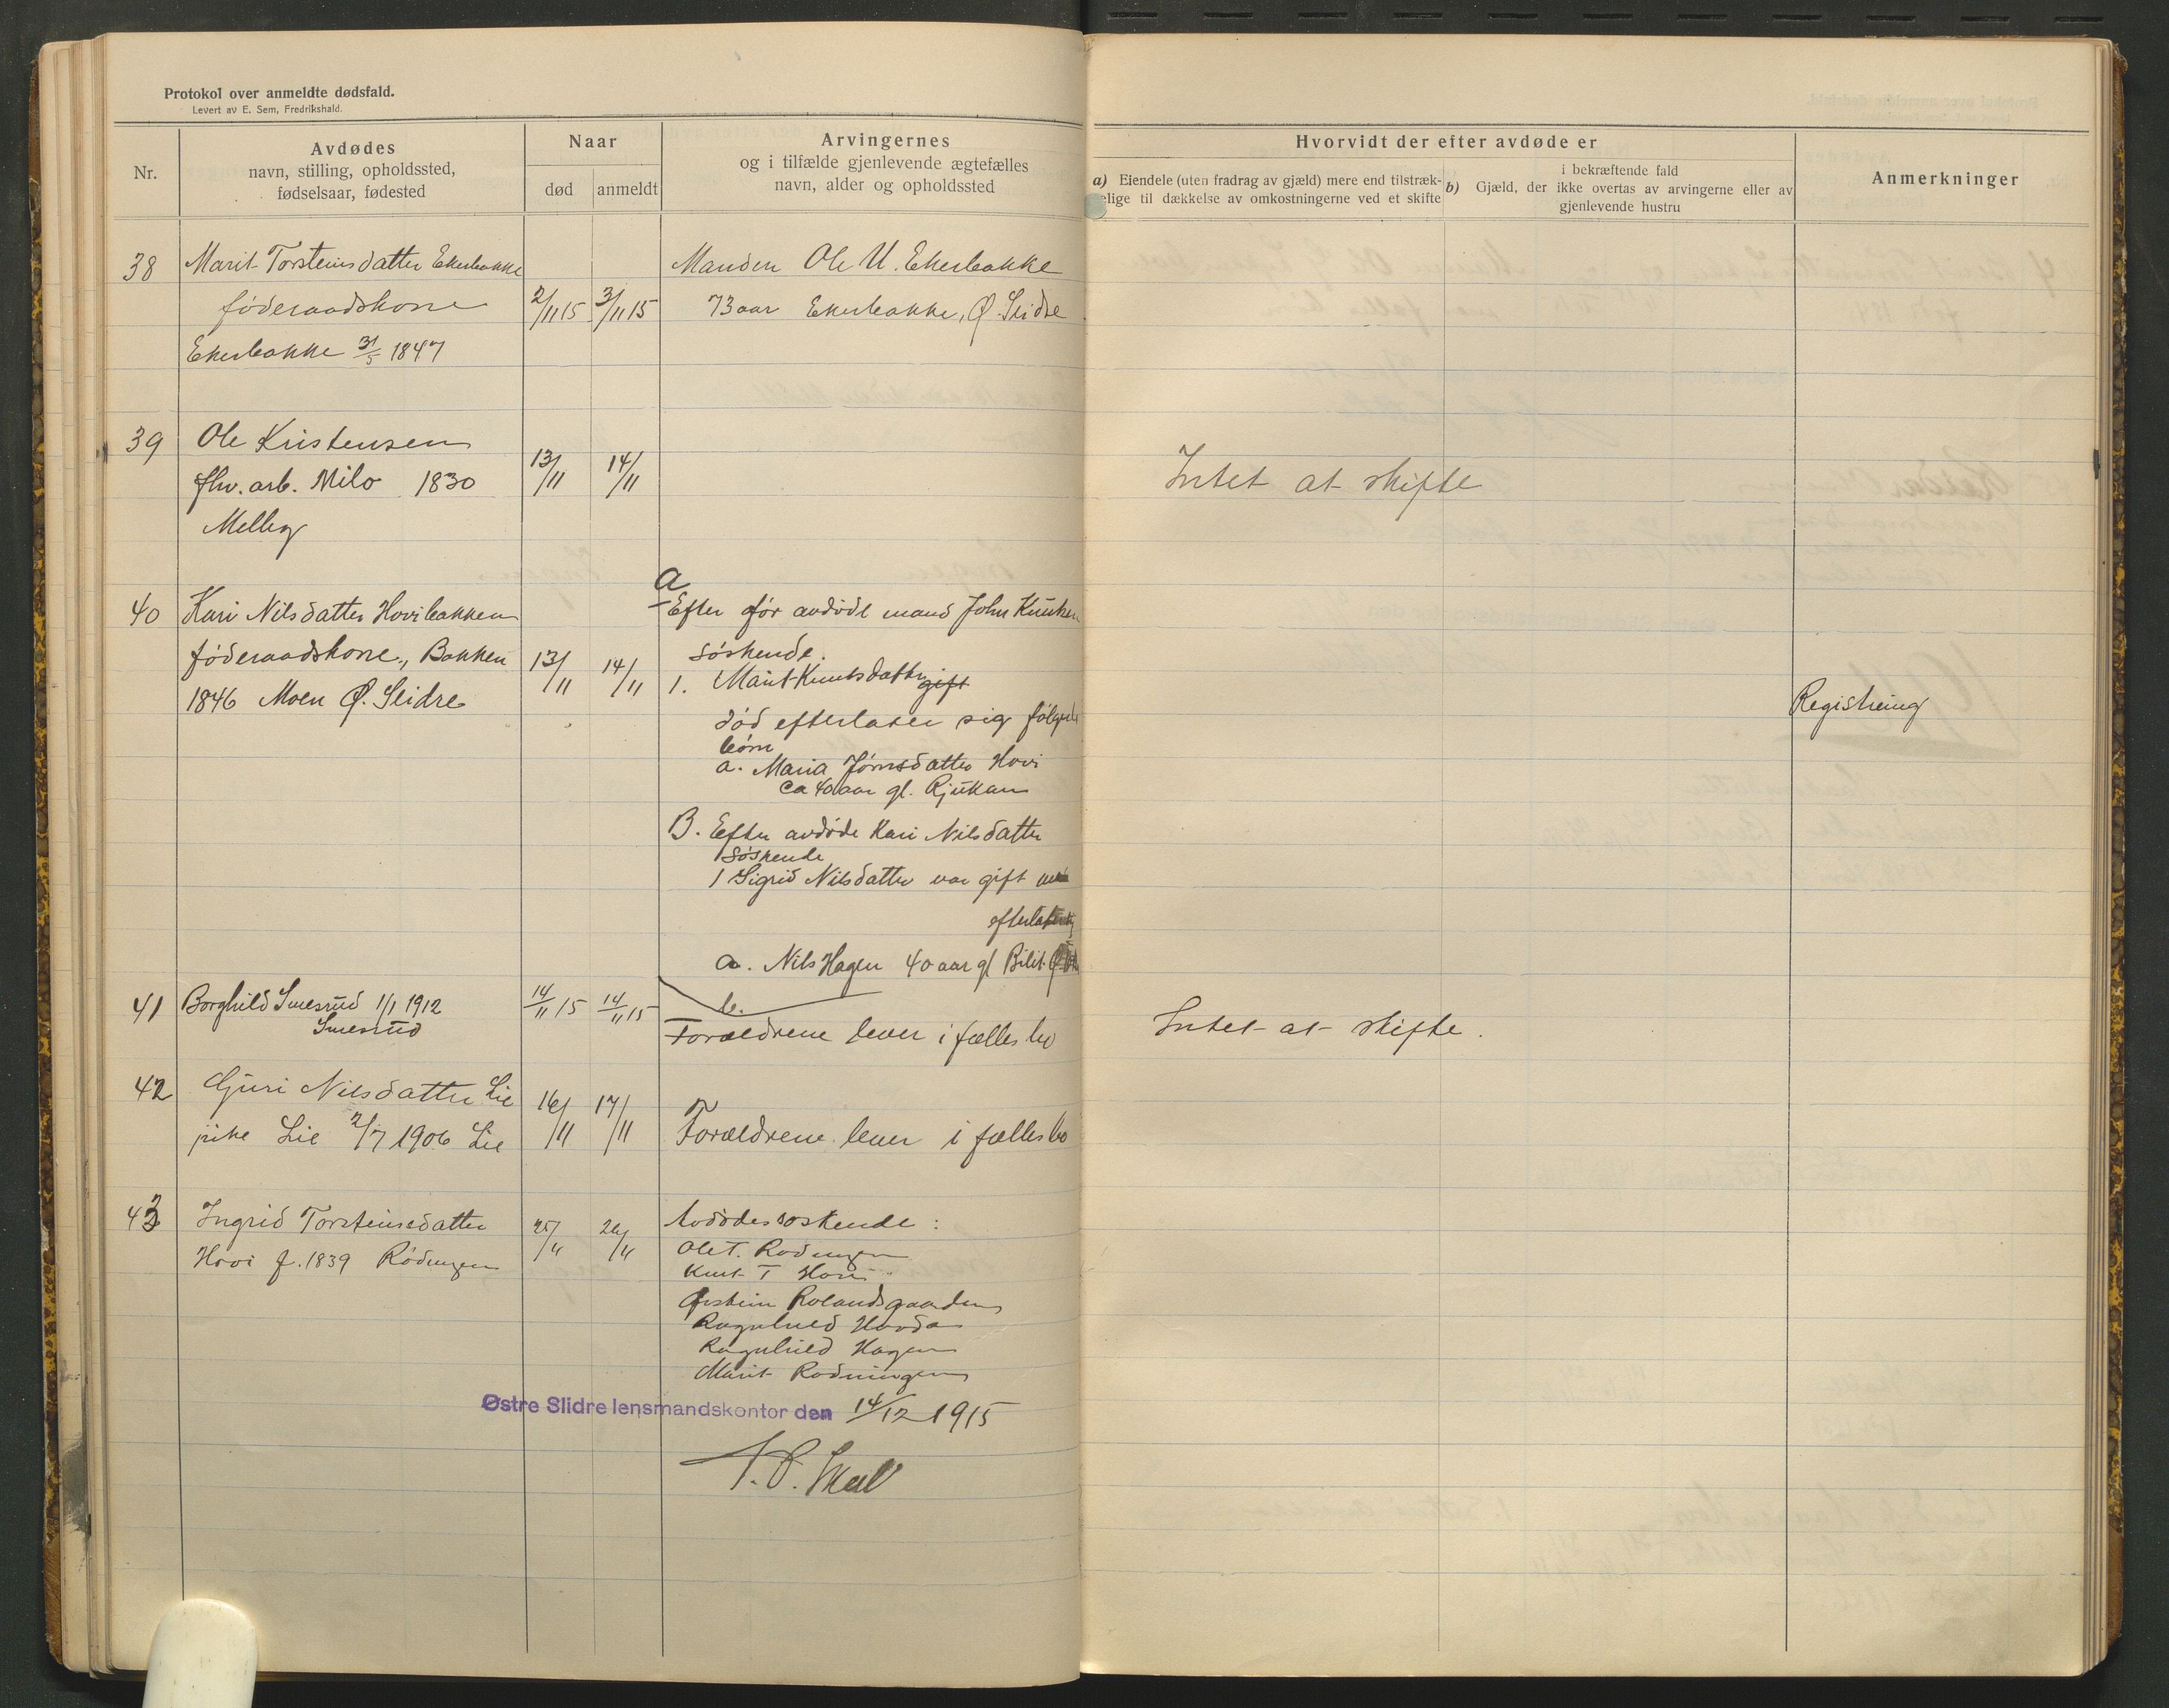 Protokol over anmeldte dødsfald.
Levert av E. Sem, Fredrikshald.
Nr.
Avdødes
navn, stilling, opholdssted,
fødselsaar, fødested
Naar
død
anmeldt
Arvingernes
og i tilfælde gjenlevende ægtefælles
navn, alder og opholdssted
Hvorvidt der efter avdøde er
a) Eiendele (uten fradrag av gjæld) mere end tilstræk-
elige til dækkelse av omkostningerne ved et skifte
i bekræftende fald
b) Gjæld, der ikke overtas av arvingerne eller av
gjenlevende hustru
Anmerkninger
38 Marit Torsteinsdatter Ekerbakke
føderaadskone
Ekerbakke 31/5 1847
2/11 15 3/11 15
Manden Ole U. Ekerbakke
73 aar Ekerbakke, Ø. Slidre
39 Ole Kristensen
fhv. arb. Milo 1830
13/11 14/11
Intet at skifte
40 Kari Nilsdatter Hovibakken
føderaadskone, Bakken
1846 Moen Ø. Slidre
13/11 14/11
A
Efter før avdøde mand John Knutsen
søskende.
1. Marit Knutsdatter gift
død efterlater sig følgende
børn
a. Maria Jørnsdatter Hovi
ca 40 aar gl. Rjukan
B. Efter avdøde Kari Nilsdatter
søskende
1 Sigrid Nilsdatter var gift
efterlater sig
a. Nils Hagen 40 aar gl
b.
Registrering
41 Borghild Smesrud 1/1 1912
Smesrud
14/11 15 14/11 15
Forældrene lever i fælles bo
Intet at skifte.
42 Guri Nilsdatter Lie
pike Lie 2/7 1906 Lie
16/11 17/11
Forældrene lever i fælles bo
43 Ingrid Torsteinsdatter
Hovi f. 1839 Rødningen
25/11 26/11
Avdødes søskende:
Ole T. Rødningen
Knut T Hovi
Øistein Rolandsgaarden
Ragnhild Hovda
Ragnhild Hagen
Marit Rødningen
Østre Slidre lensmandskontor den 14/12 1915